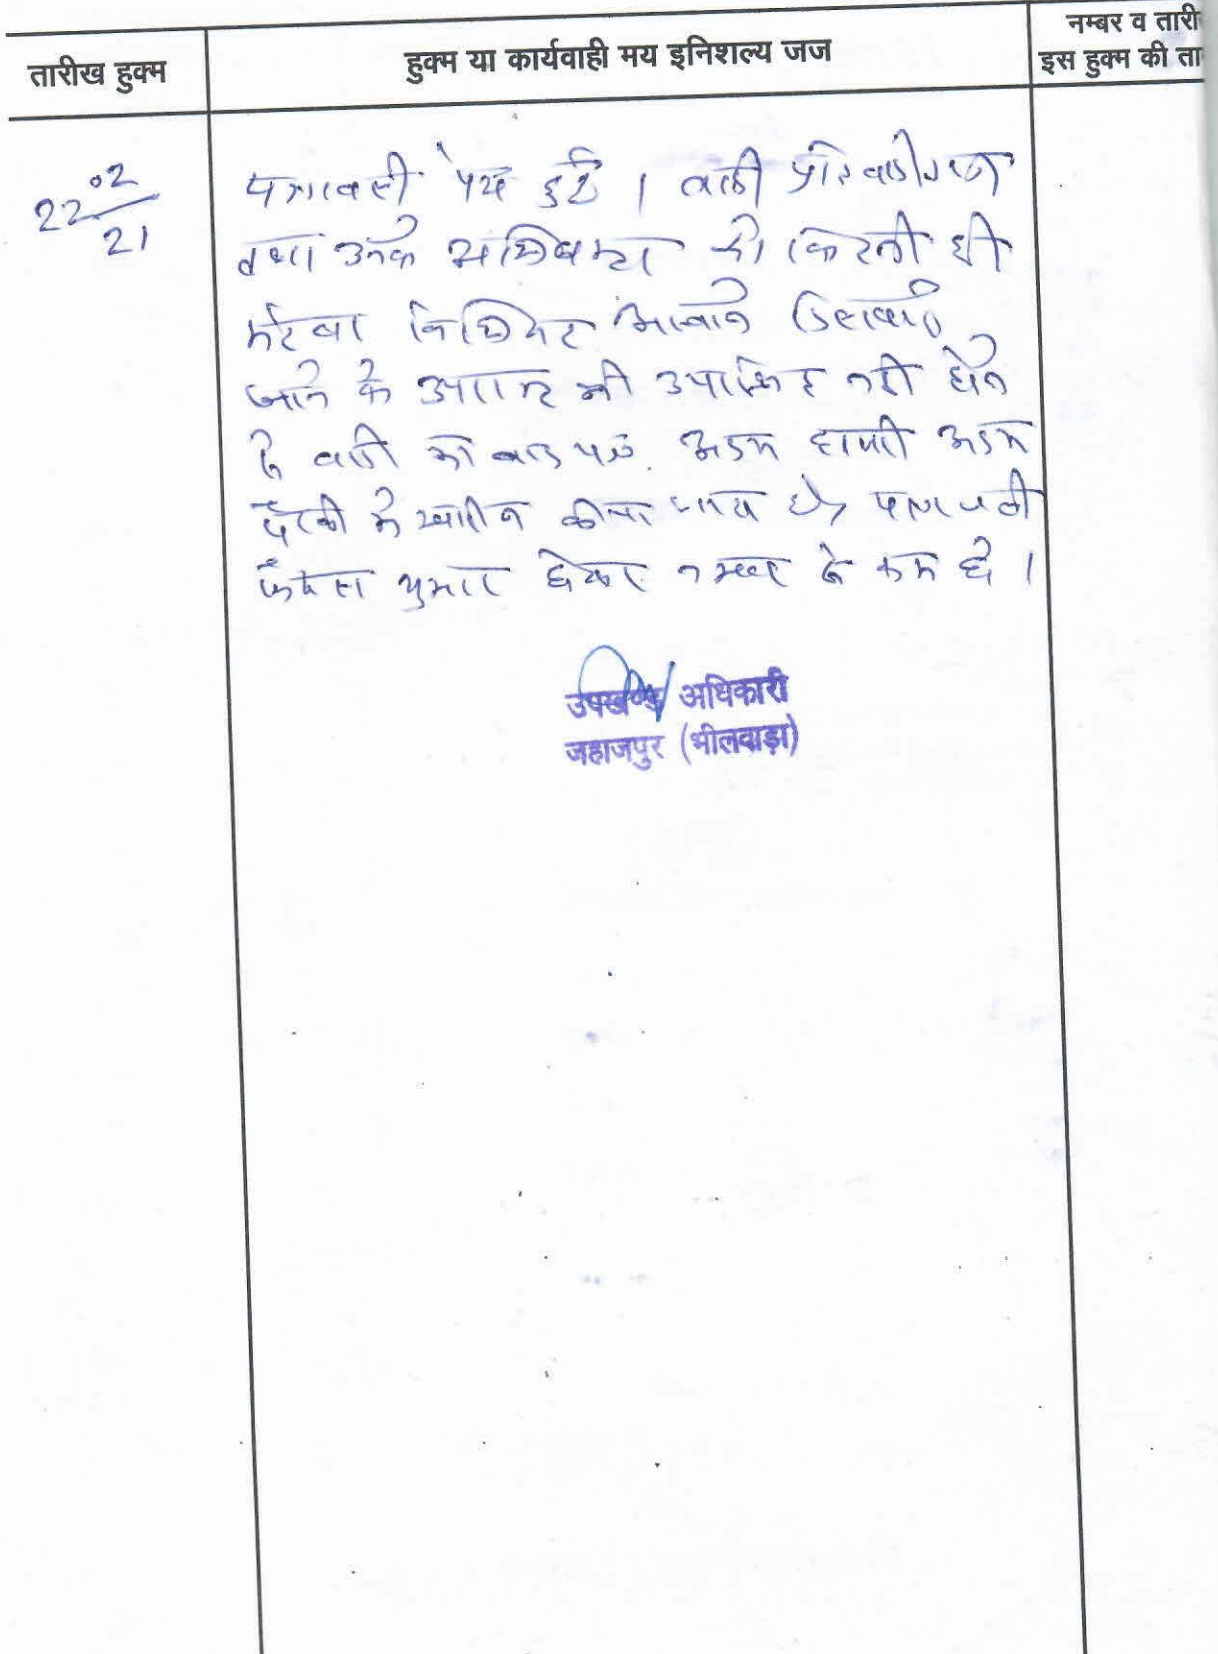 तारीख हुक्म
हुक्म या कार्यवाही मय इनिशल्य जज
नम्बर व तारी
इस हुक्म की ता
22 02
21
पत्रावली पेश हुई । वादी प्रतिवादीगण
तथा उनके अभिभाषक को कितनी ही
मरतबा विधिवत आवाजे दिलवाई
जाने के उपरान्त भी उपस्थित नही होने
से वादी का वाद पत्र अदम हाजरी अदम
पैरवी मे खारीज कीया जाता है पत्रावली
फैसल शुमार होकर नम्बर से कम हो ।
उपखण्ड अधिकारी
जहाजपुर (भीलवाड़ा)